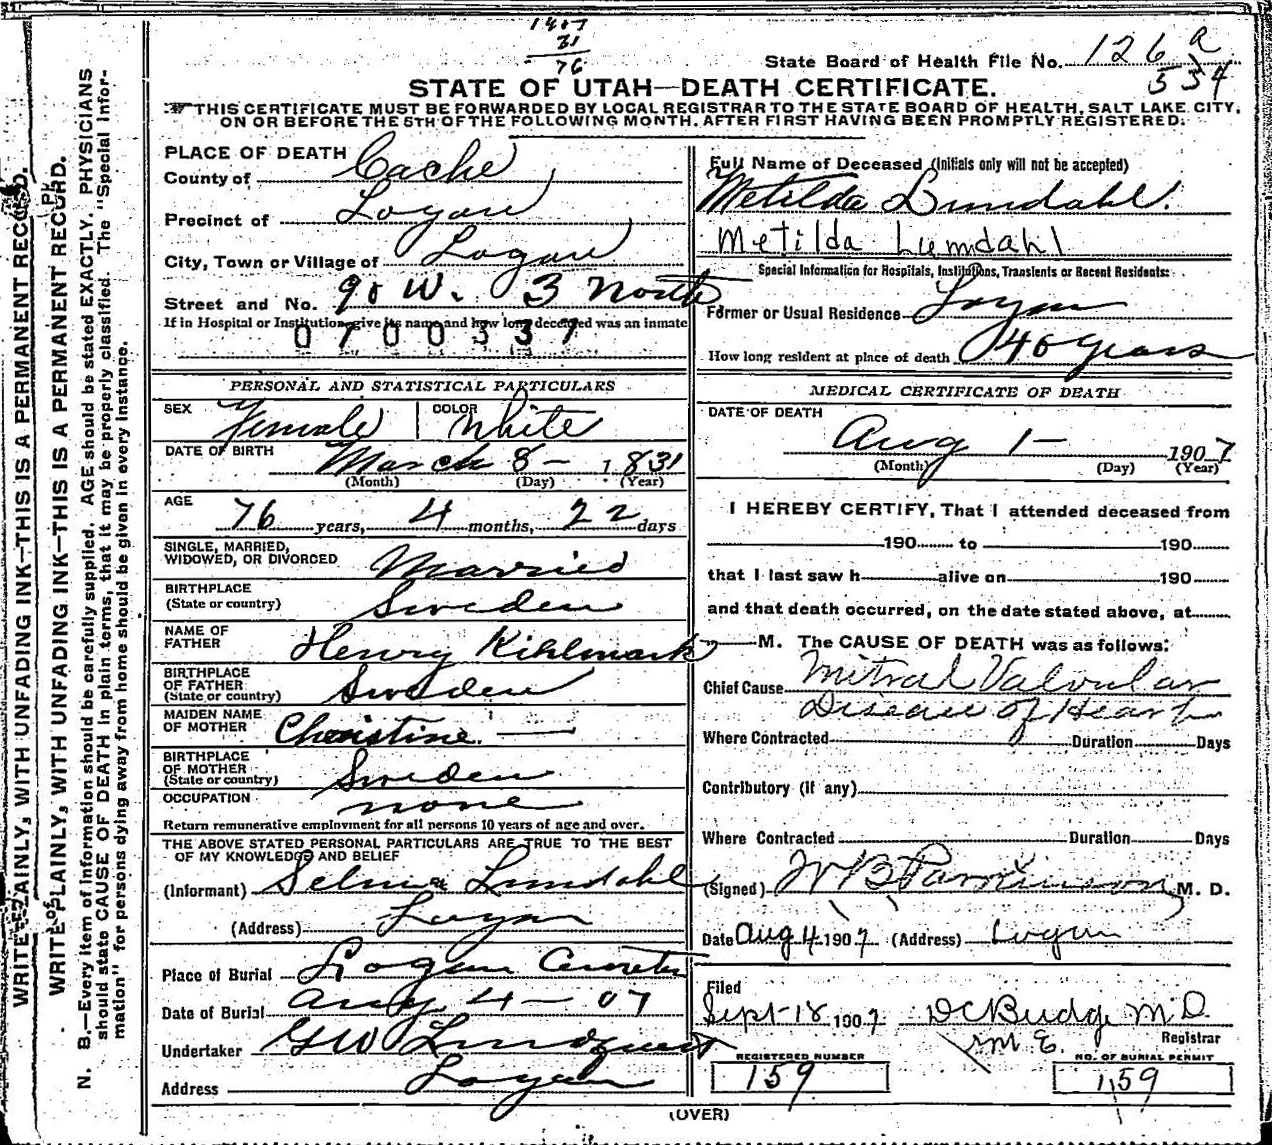 1907
31
76
State Board of Health File No. 126 a
534
STATE OF UTAH—DEATH CERTIFICATE.
THIS CERTIFICATE MUST BE FORWARDED BY LOCAL REGISTRAR TO THE STATE BOARD OF HEALTH, SALT LAKE CITY,
ON OR BEFORE THE 5TH OF THE FOLLOWING MONTH, AFTER FIRST HAVING BEEN PROMPTLY REGISTERED.
WRITE PLAINLY, WITH UNFADING INK—THIS IS A PERMANENT RECORD.
WRITE PLAINLY, WITH UNFADING INK—THIS IS A PERMANENT RECORD.
N. B.—Every item of information should be carefully supplied. AGE should be stated EXACTLY. PHYSICIANS
should state CAUSE OF DEATH in plain terms, that it may be properly classified. The "Special Infor-
mation" for persons dying away from home should be given in every instance.
PLACE OF DEATH
County of Cache
Precinct of Logan
City, Town or Village of Logan
Street and No. 90 W. 3 North
If in Hospital or Institution, give its name and how long deceased was an inmate
0700337
PERSONAL AND STATISTICAL PARTICULARS
SEX Female COLOR White
DATE OF BIRTH March 8 – 1831
(Month) (Day) (Year)
AGE 76 years, 4 months, 22 days
SINGLE, MARRIED,
WIDOWED, OR DIVORCED Married
BIRTHPLACE
(State or country) Sweden
NAME OF
FATHER Henry Kihlmark
BIRTHPLACE
OF FATHER
(State or country) Sweden
MAIDEN NAME
OF MOTHER Christine —
BIRTHPLACE
OF MOTHER
(State or country) Sweden
OCCUPATION none
Return remunerative employment for all persons 10 years of age and over.
THE ABOVE STATED PERSONAL PARTICULARS ARE TRUE TO THE BEST
OF MY KNOWLEDGE AND BELIEF
(Informant) Selma Lundahl
(Address) Logan
Place of Burial Logan Cemetery
Date of Burial Aug 4 – 07
Undertaker GW Lindquist
Address Logan
Full Name of Deceased (Initials only will not be accepted)
Metilda Lundahl.
Metilda Lumdahl
Special Information for Hospitals, Institutions, Transients or Recent Residents:
Former or Usual Residence Logan
How long resident at place of death 40 years
MEDICAL CERTIFICATE OF DEATH
DATE OF DEATH
Aug 1 – 1907
(Month) (Day) (Year)
I HEREBY CERTIFY, That I attended deceased from
190 to 190
that I last saw h alive on 190
and that death occurred, on the date stated above, at
M. The CAUSE OF DEATH was as follows:
Chief Cause Mitral Valvular
Disease of Heart
Where Contracted Duration Days
Contributory (if any)
Where Contracted Duration Days
(Signed) W B Parkinson M. D.
Date Aug 4 1907 (Address) Logan
Filed
Sept 18 1907 DC Budge M D
Registrar
REGISTERED NUMBER NO. OF BURIAL PERMIT
159 1159
(OVER)